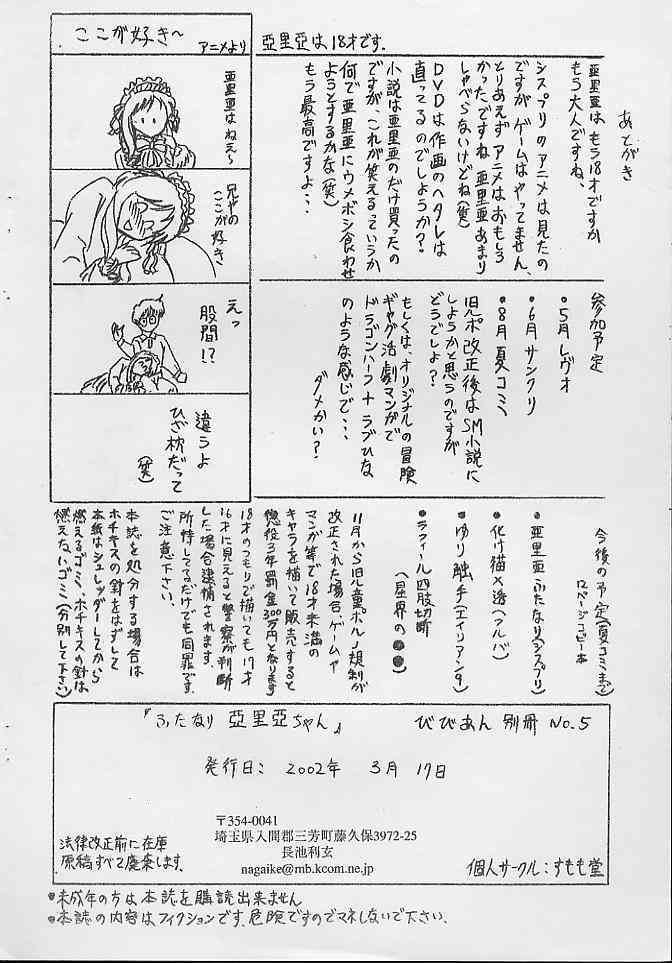 ここが好き〜
アニメより
亜里亜はねえ〜
兄やの
ここが好き、
えっ
股間!?
違うよ
ひざ枕だって
(笑)
亜里亜は18才です.
あとがき
亜里亜は、もう18才ですか
もう大人ですね、
シスプリのアニメは見たの
ですが、ゲームはやってません、
とりあえずアニメはおもしろ
かったですね 亜里亜あまり
しゃべらないけどね(笑)
DVDは作画のヘタレは
直ってるのでしょうか?
小説は亜里亜のだけ買ったの
ですが、これが笑えるっていうか
何で亜里亜にウメボシ食わせ
ようとするかな(笑)
もう最高ですよ・・・
参加予定
●5月レヴォ
●6月サンクリ
●8月夏コミ
旧ポ改正後はSM小説に
しようかと思うのですが
どうでしょ?
もしくは、オリジナルの冒険
ギャグ活劇マンガで
ドラゴンハーフ+ラブひな
のような感じで・・・
ダメかい?
今後の予定(夏コミまで)
12ページコピー本
●亜里亜ふたなり(シスプリ)
●化け猫×透(アルバ)
●ゆり触手(エイリアン9)
●ラフィール四肢切断
(星界の●●)
11月から旧児童ポルノ規制が
改正された場合、ゲームや
マンガ等で18才未満の
キャラを描いて販売すると
懲役3年罰金300万円となります
18才のつもりで描いても17才
16才に見えると警察が判断
した場合逮捕されます.
所持してるだけでも同罪です
ご注意下さい.
本誌を処分する場合は
ホチキスの針をはずして
本紙はシュレッダーしてから
燃えるゴミ、ホチキスの針は
燃えないゴミ(分別して下さい)
『ふたなり 亜里亜ちゃん』
びびあん 別冊 No.5
発行日: 2002年 3月 17日
〒354-0041
埼玉県入間郡三芳町藤久保3972-25
長池利玄
nagaike@mb.kcom.ne.jp
法律改正前に在庫
原稿すべて廃棄します.
個人サークル:すもも堂
●未成年の方は本誌を購読出来ません
●本誌の内容はフィクションです.危険ですのでマネしないで下さい.